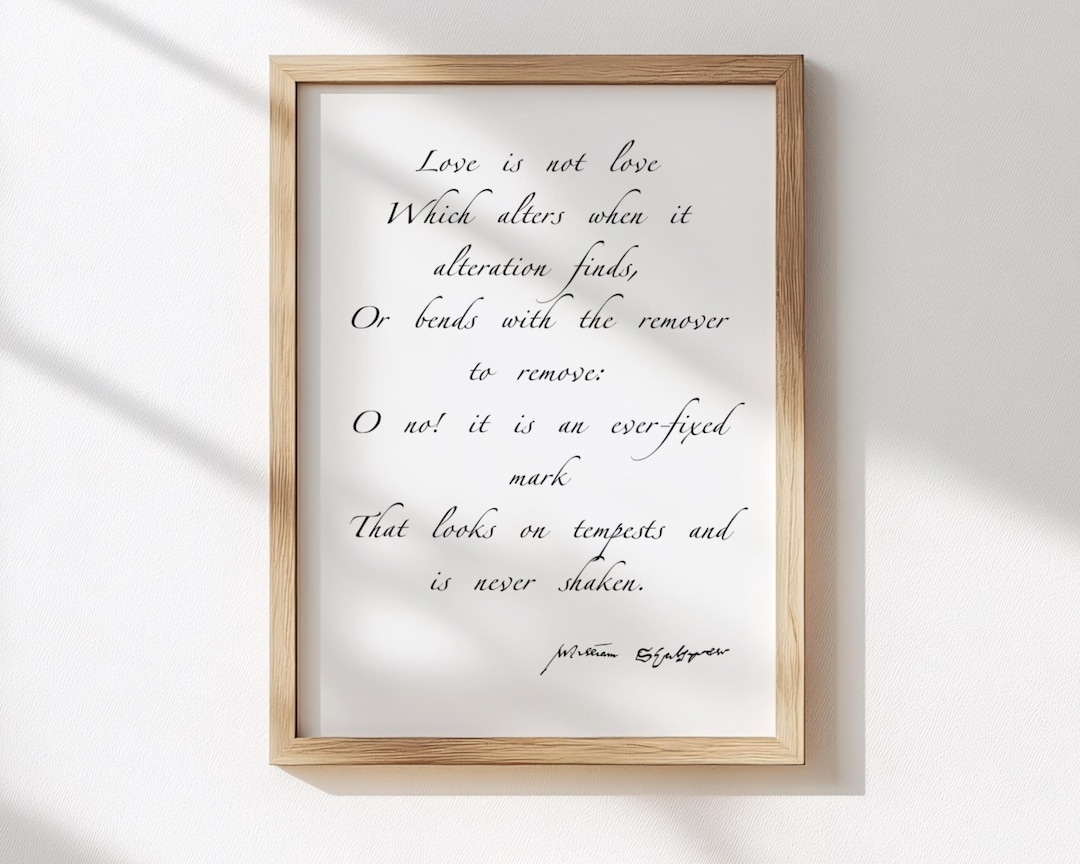 Love is not love
Which alters when it
alteration finds,
Or bends with the remover
to remove:
O no! it is an ever-fixed
mark
That looks on tempests and
is never shaken.
William